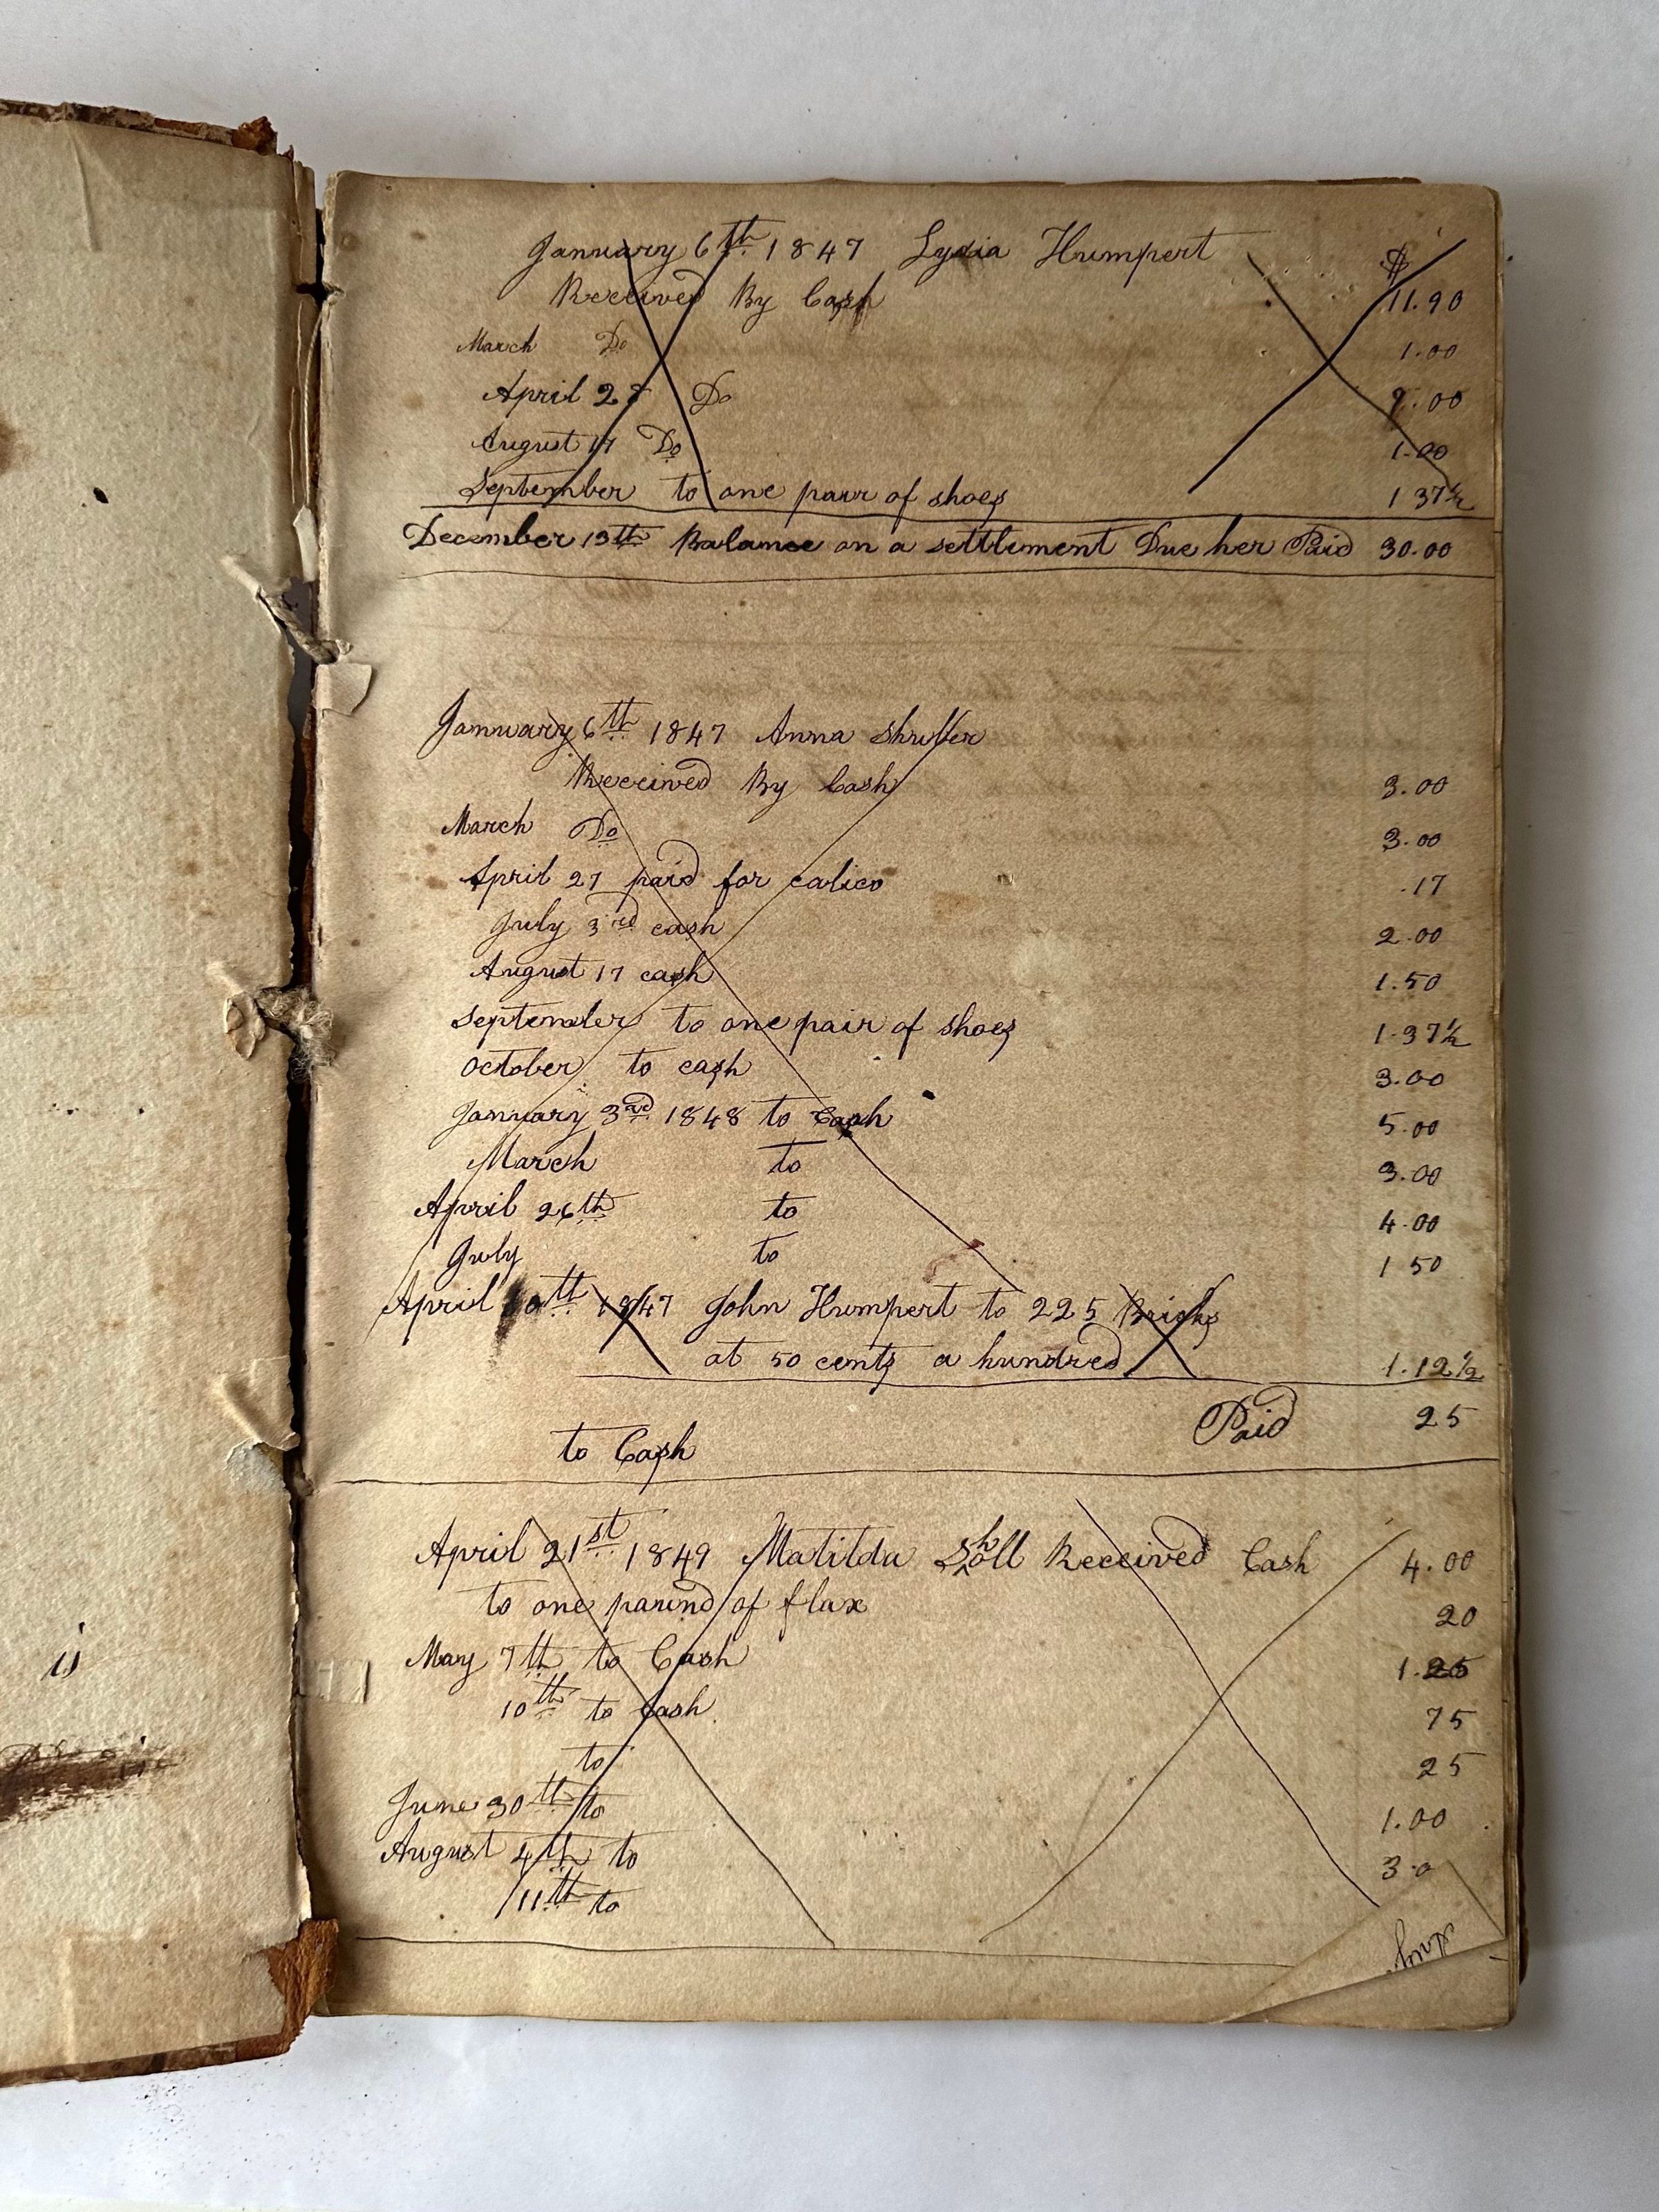 January 6th 1847 Lydia Humpert $
Received By Cash 11.90
March Do 1.00
April 27 Do .00
August 17 Do 1.00
September to one pair of shoes 1 37½
December 13th Balance on a settlement Due her Paid 30.00
January 6th 1847 Anna
Received By Cash 3.00
March Do 3.00
April 27 paid for calico .17
July 3rd cash 2.00
August 17 cash 1.50
September to one pair of shoes 1.37½
October to cash 3.00
January 3rd 1848 to Cash 5.00
March to 3.00
April 26th to 4.00
July to 1 50
April 10th 1847 John Humpert to 225 Bricks
at 50 cents a hundred 1.12½
to Cash Paid 25
April 21st 1849 Matilda Sholl Received Cash 4.00
to one paund of flax 20
May 7th to Cash 1.25
10th to Cash 75
to 25
June 30th to 1.00
August 4th to 3.0
11th to
is